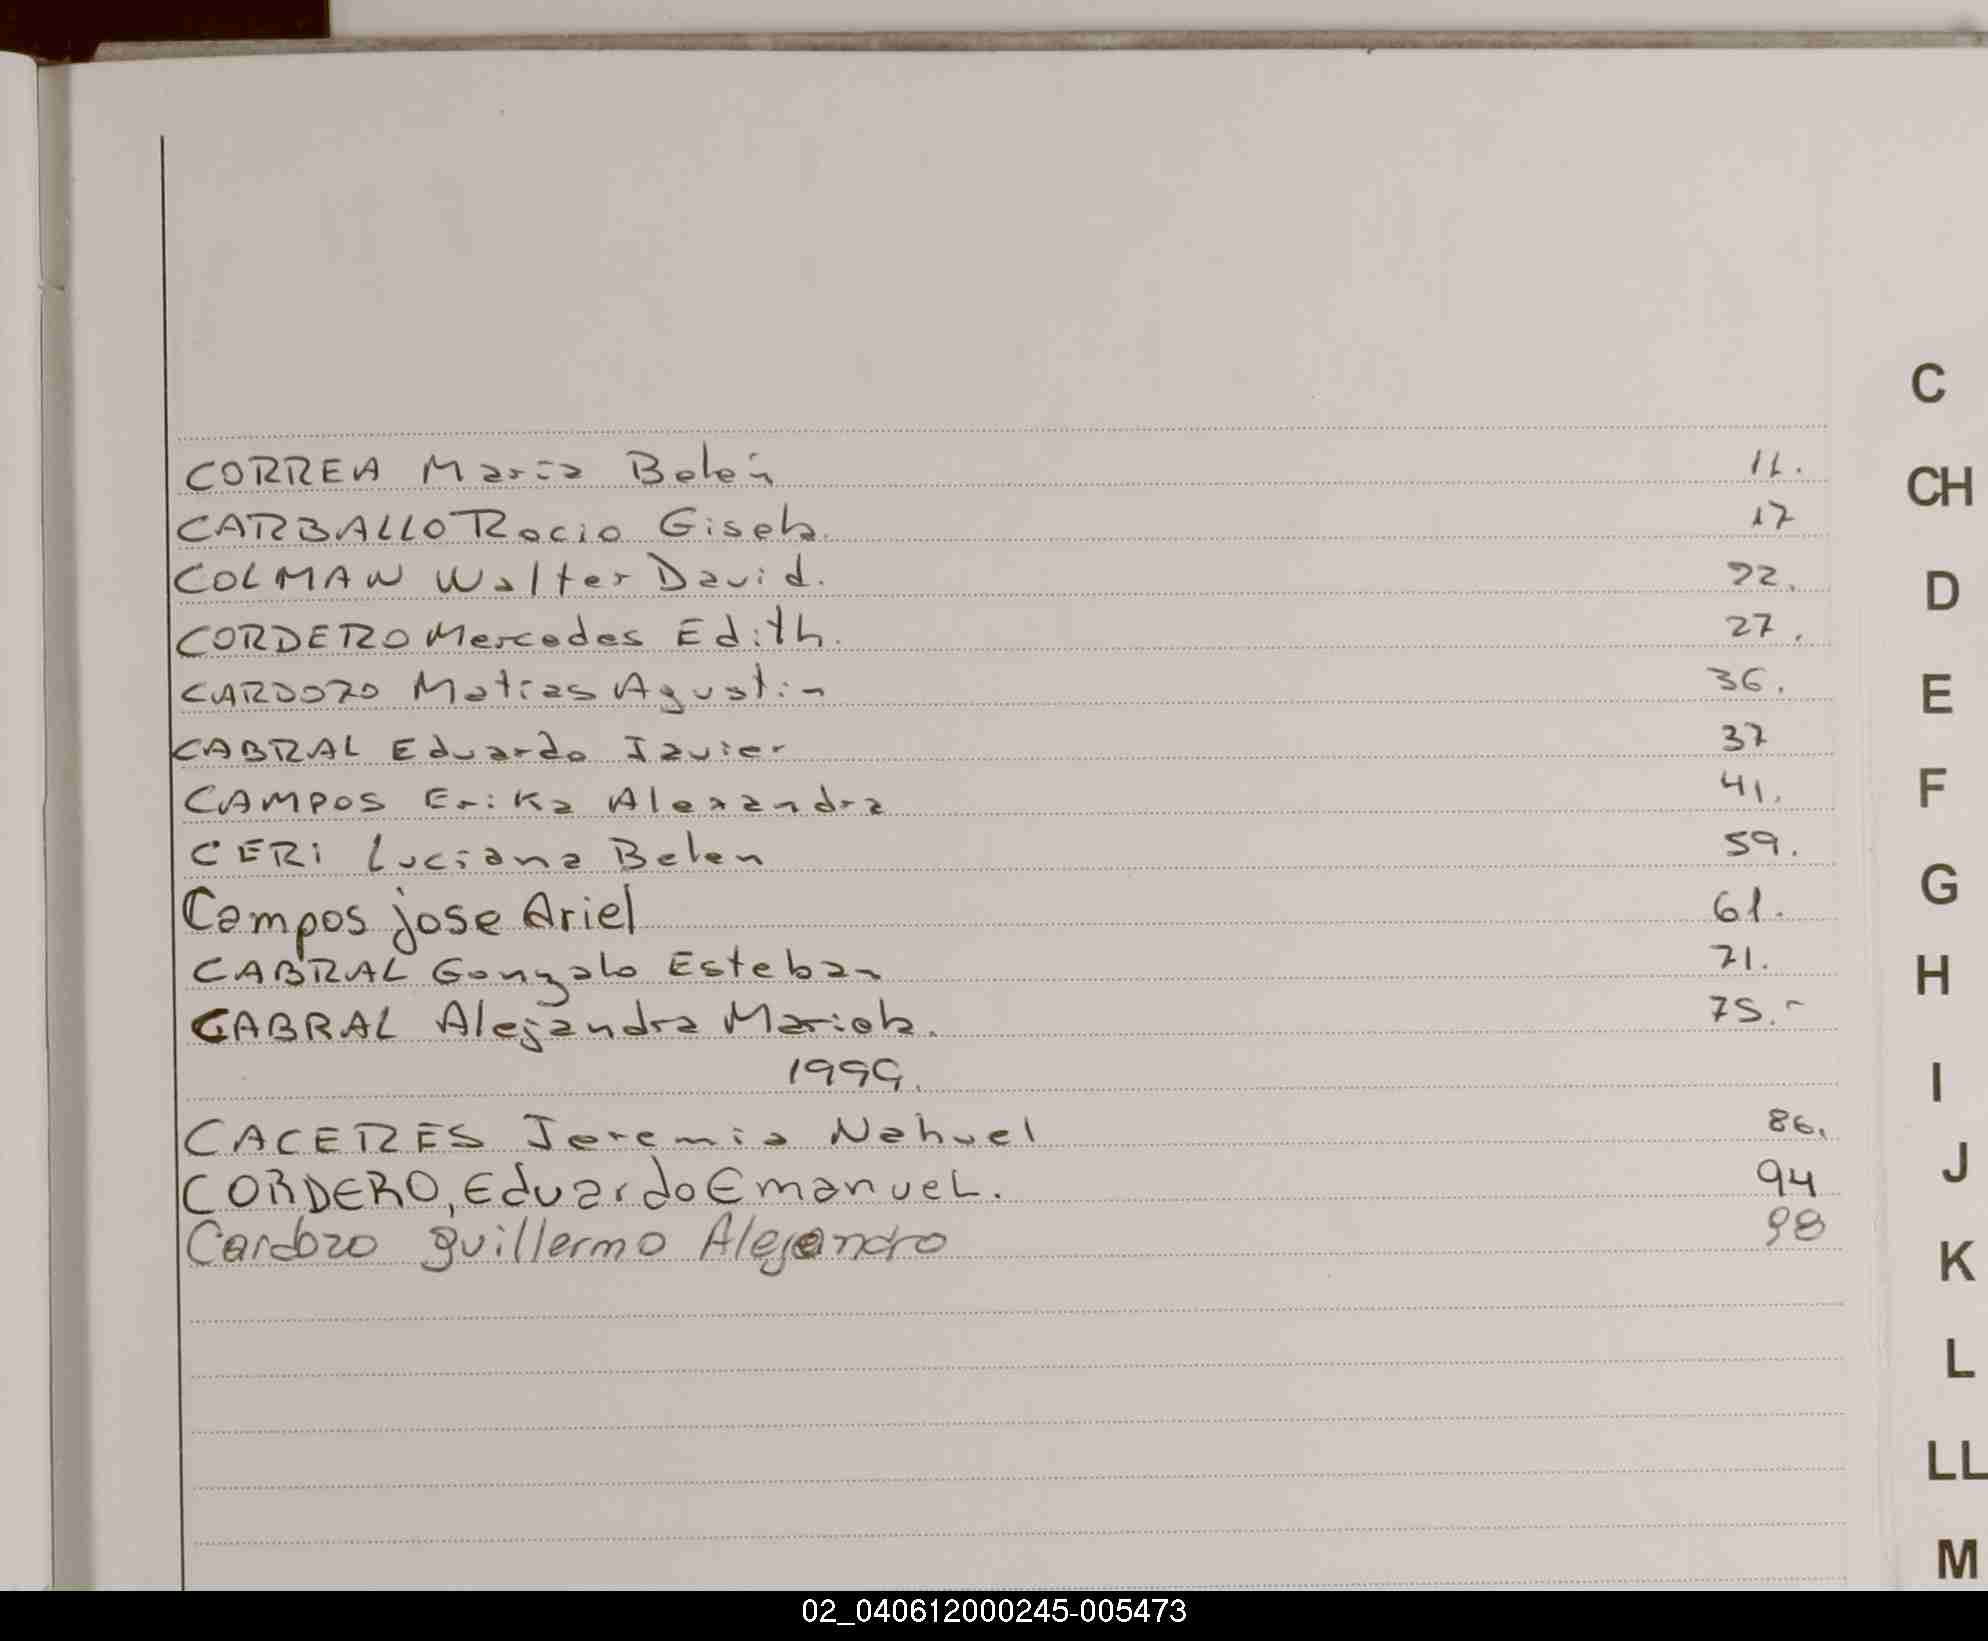 CORREA Maria Belén 11.
CARBALLO Rocio Gisela. 17
COLMAN Walter David. 22.
CORDERO Mercedes Edith. 27.
CARDOZO Matias Agustin 36.
CABRAL Eduardo Javier 37
CAMPOS Erika Alexandra 41.
CERI Luciana Belen 59.
Campos jose Ariel 61.
CABRAL Gonzalo Esteban 71.
CABRAL Alejandra Mariela. 75.-
1999.
CACERES Jeremia Nahuel 86.
CORDERO, Eduardo EmanueL. 94
Cardozo guillermo Alejandro 98
C
CH
D
E
F
G
H
I
J
K
L
LL
M
02_040612000245-005473